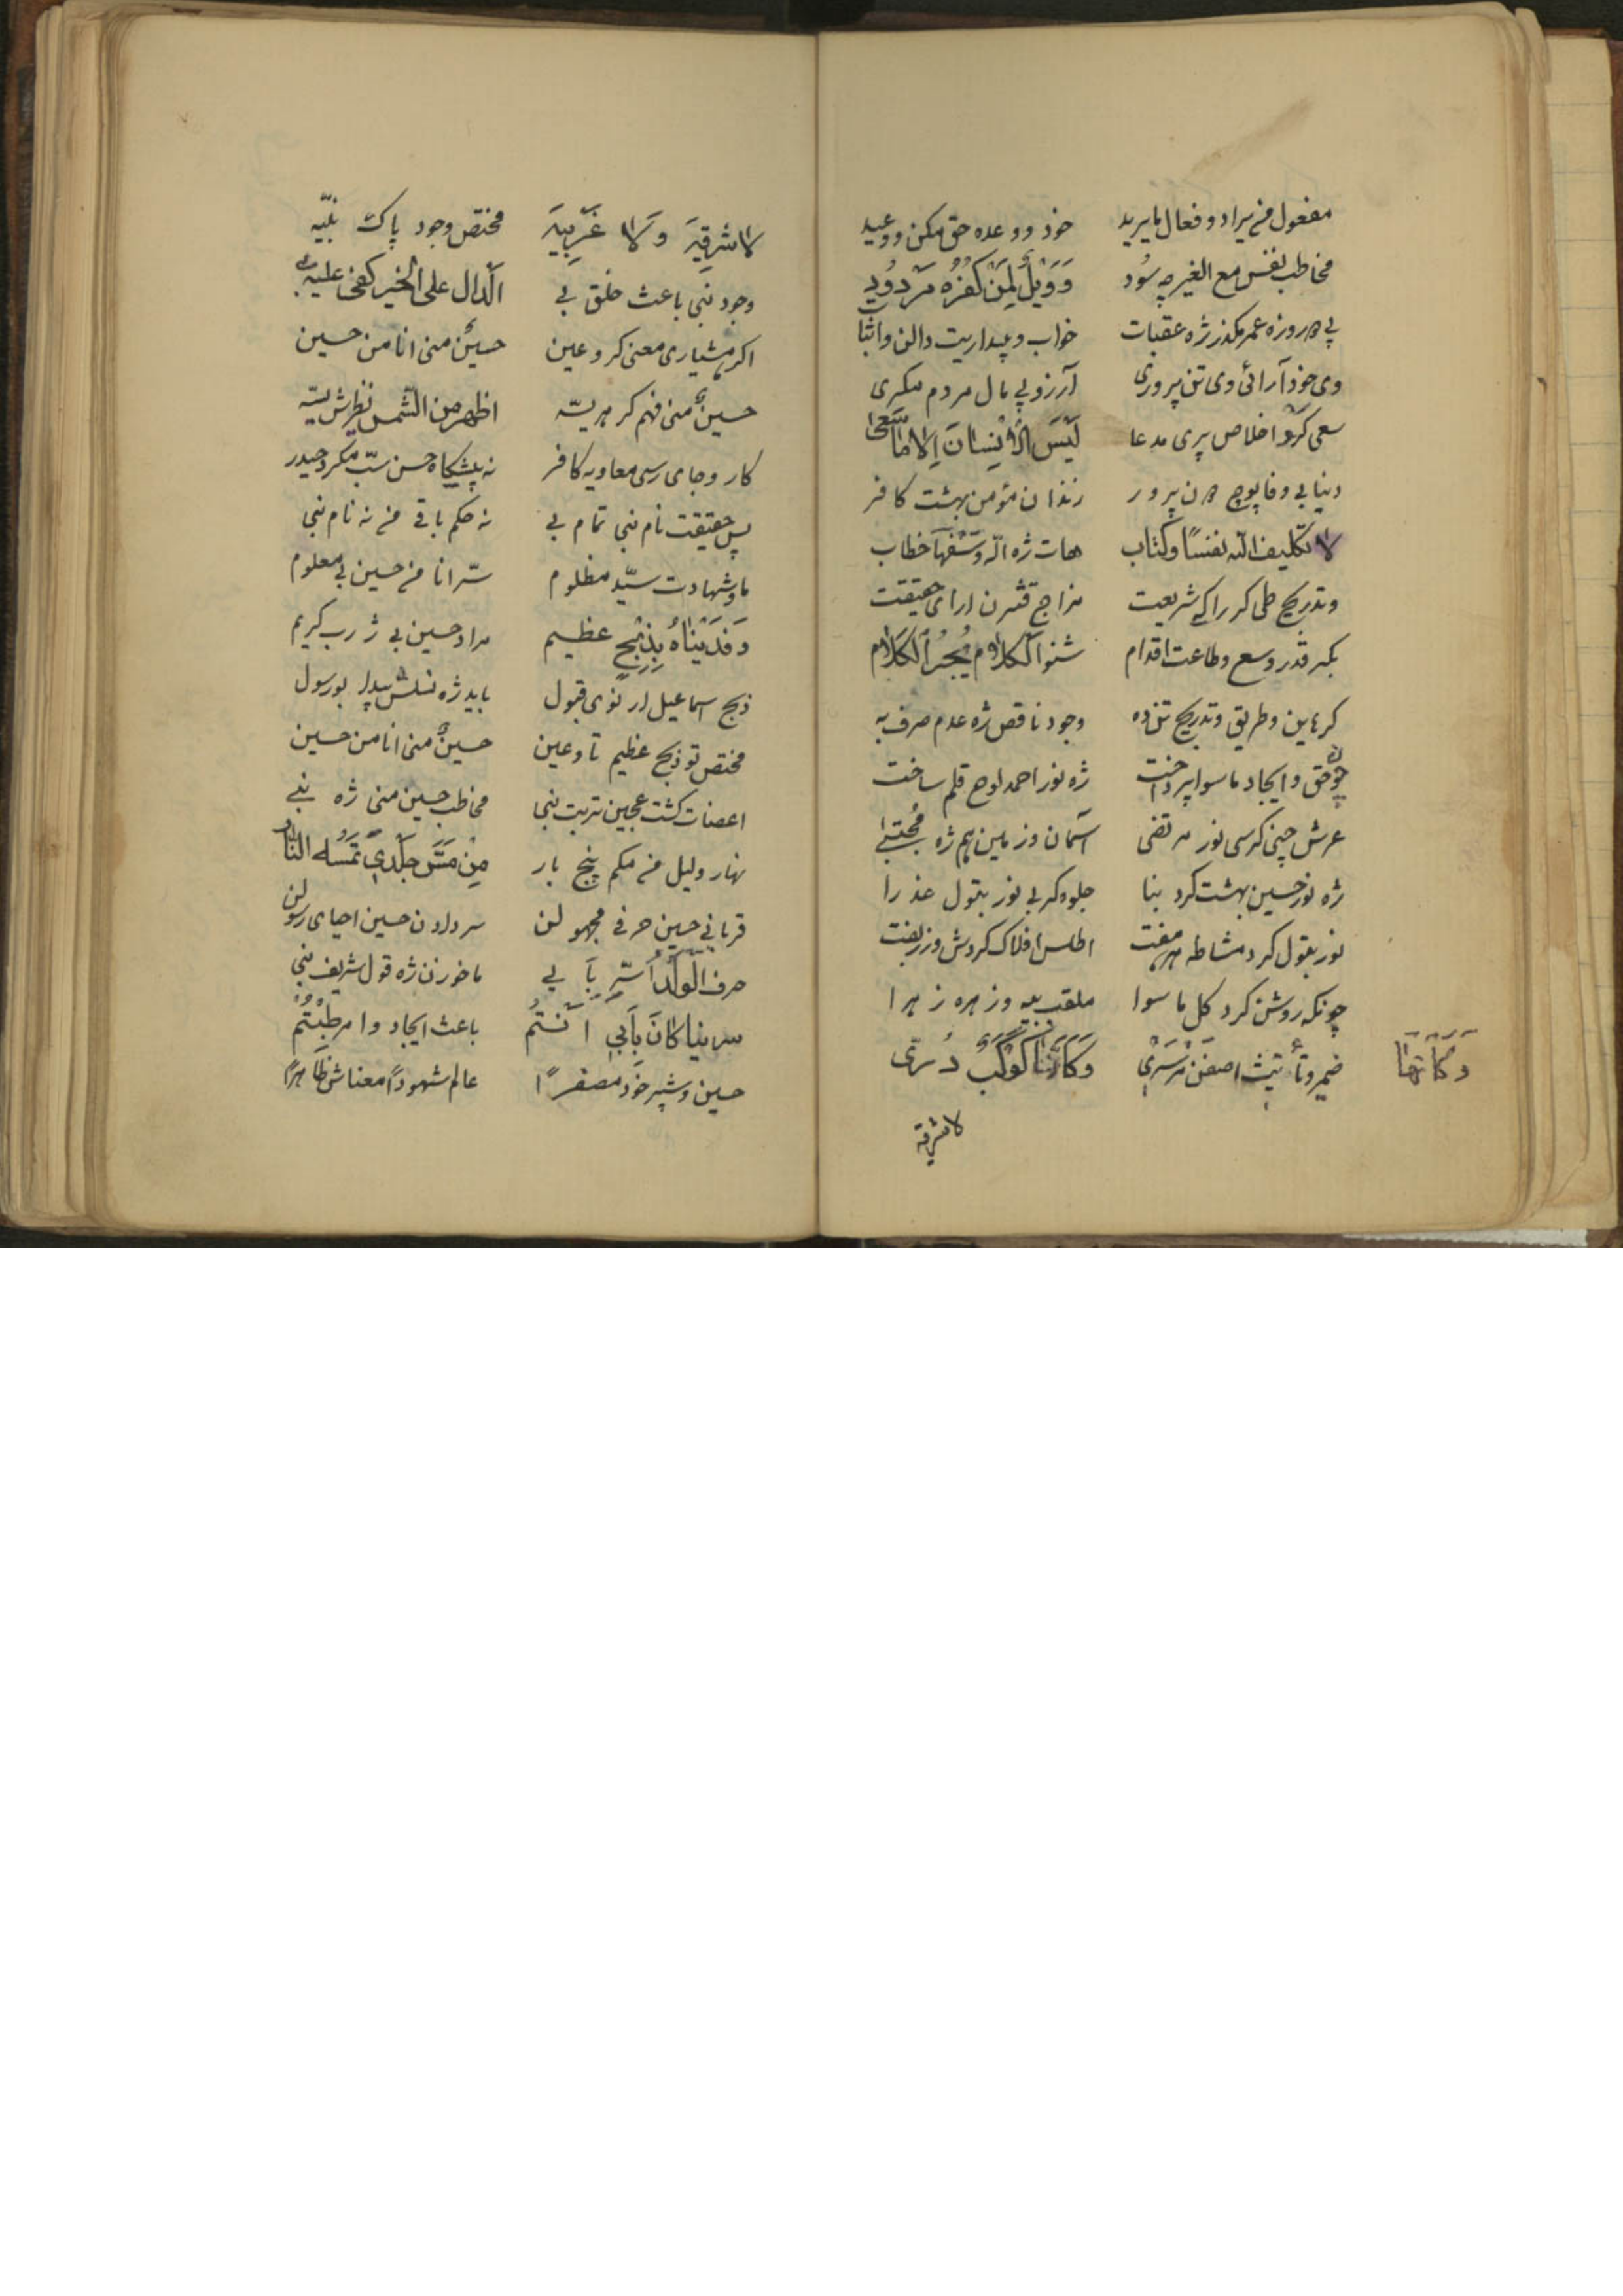 مفعول من یراد و فعال مایرید خود دو وعده حق مکن ووعید
مخاطب نفس مع الغیر چه سُود وَوَیْلٌ لِمَنْ كَفَرَه مَرْدُود
پی روزه عمر مکذر ژه عقبات خواب و بیداریت دالن واثبا
وی خود آرائی وی تن پروری آرزو پی مال مردم مکری
سعی کَرْ و اخلاص پری مدعا لَیْسَ الْاِنْسانَ اِلا ماسَعیٰ
دینا بی وفا پوچ تن پرور زندان مؤمن بهشت کافر
لا تکلیف الله نفسًا و کتاب هات ژه اله وسْعَهَا خطاب
وتدریج طی کر راکی شریعت مزاج قشرن ارای حقیقت
بکیر قدر وسع وطاعت اقدام شنو الکلام یُجْرُ الکَلام
کرماین وطریق وتدریج تن ده وجود ناقص ژه عدم صرف به
چون حق وایجاد ماسوا پرداخت ژه نور احمد لوح قلم ساخت
عرش چنی کرسی نور مرتضی آسمان وزمین هم ژه مُجْتَبیٰ
ژه نور حسین بهشت کرد بنا جلوه کر بی نور بتول عذرا
نور بتول کرد مشاطه مفت اطلس افلاک کردش وزربفت
چونکه روشن کرد کل ماسوا ملقب بیه وزهره زهرا
ضمیر وتأنیث اصغن سَرْسَری وَكَأَنَّهَا كَوْكَبٌ دُرّی
وَكَأَنَّهَا
لاشرقیة
لا شَرْقِیَةَ وَلا غَرْبِیَةَ مختص وجود پاک نبیّه
وجود نبی باعث خلق بی الَدال علی الخیر کفی علیه
اکر هشیاری معنی کر وعین حسینٌ منی انا من حسین
حسینٌ منی فهم کر هریتّه اظهر من الشمس نظرش یته
کار وجای رسی معاویه کافر نه پیشکاه حسن سبّ مکرد حیدر
پس حقیقت نام نبی تمام بی نه حکم باقی من نه نام نبی
ماوشهادت سیّد مظلوم سّر انا من حسین بی معلوم
وَفَدَیْنَاهُ بِذِبْحٍ عظیم مراد حسین بی ژ رب کریم
ذبح اسماعیل ار نوی قبول باید ژه نسلش پیدا بو رسول
مختص تو ذبح عظیم تاوعین حسینٌ منی انا من حسین
اعضات کشت عجین تربت نبی مخاطب حسین منی ژه نبی
نهار ولیل من مکم پنج بار مِنْ مَسَّ جِلْدی تَمَسُّه النّار
قربانی حسین حرفی مجهولن سر دادن حسین احیای رسولن
حرف الْوَلَدُ سّر بَا بی ماخوژن ژه قول شریف نبی
سرینا کَانَ بَأَبی اَنْتُم باعث ایجاد وامر طِبْتُم
حسین وشپر خود مصغرًا عالم شهودًا معناش ظَاهرًا